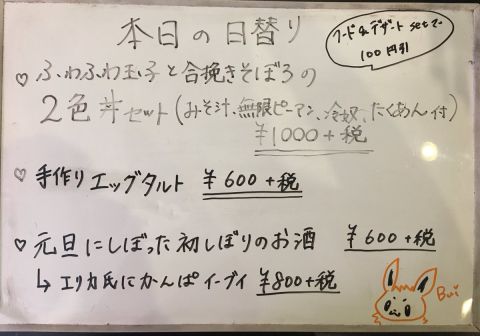 本日の日替り
フード&デザート setで
100円引
♡ ふわふわ玉子と合挽きそぼろの
2色丼セット(みそ汁、無限ピーマン、冷奴、たくあん付)
¥1000+税
♡ 手作りエッグタルト ¥600+税
♡ 元旦にしぼった初しぼりのお酒 ¥600+税
↳ エリカ氏にかんぱイーブイ ¥800+税
Bui